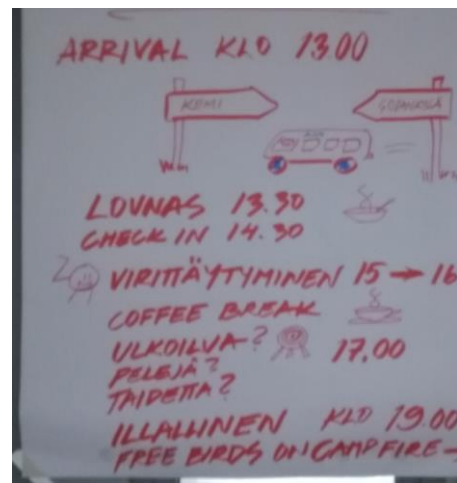 ARRIVAL KLO 13.00
KEMI
LOUNAS 13.30
CHECK IN 14.30
VIRITTÄYTYMINEN 15 → 16
COFFEE BREAK
ULKOILUA? 17.00
PELEJÄ?
TAIDETTA?
ILLALLINEN KLO 19.00
FREE BIRDS ON CAMPFIRE →